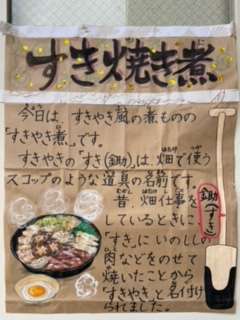 すき焼き煮
今日は、すきやき風の煮ものの
「すきやき煮」です。
すきやきの「すき(鋤)」は、畑で使う
スコップのような道具の名前です。
昔、畑仕事を
しているときに
「すき」に いのししの
肉などをのせて
焼いたことから
「すきやき」と名付け
られました。
鋤(すき)